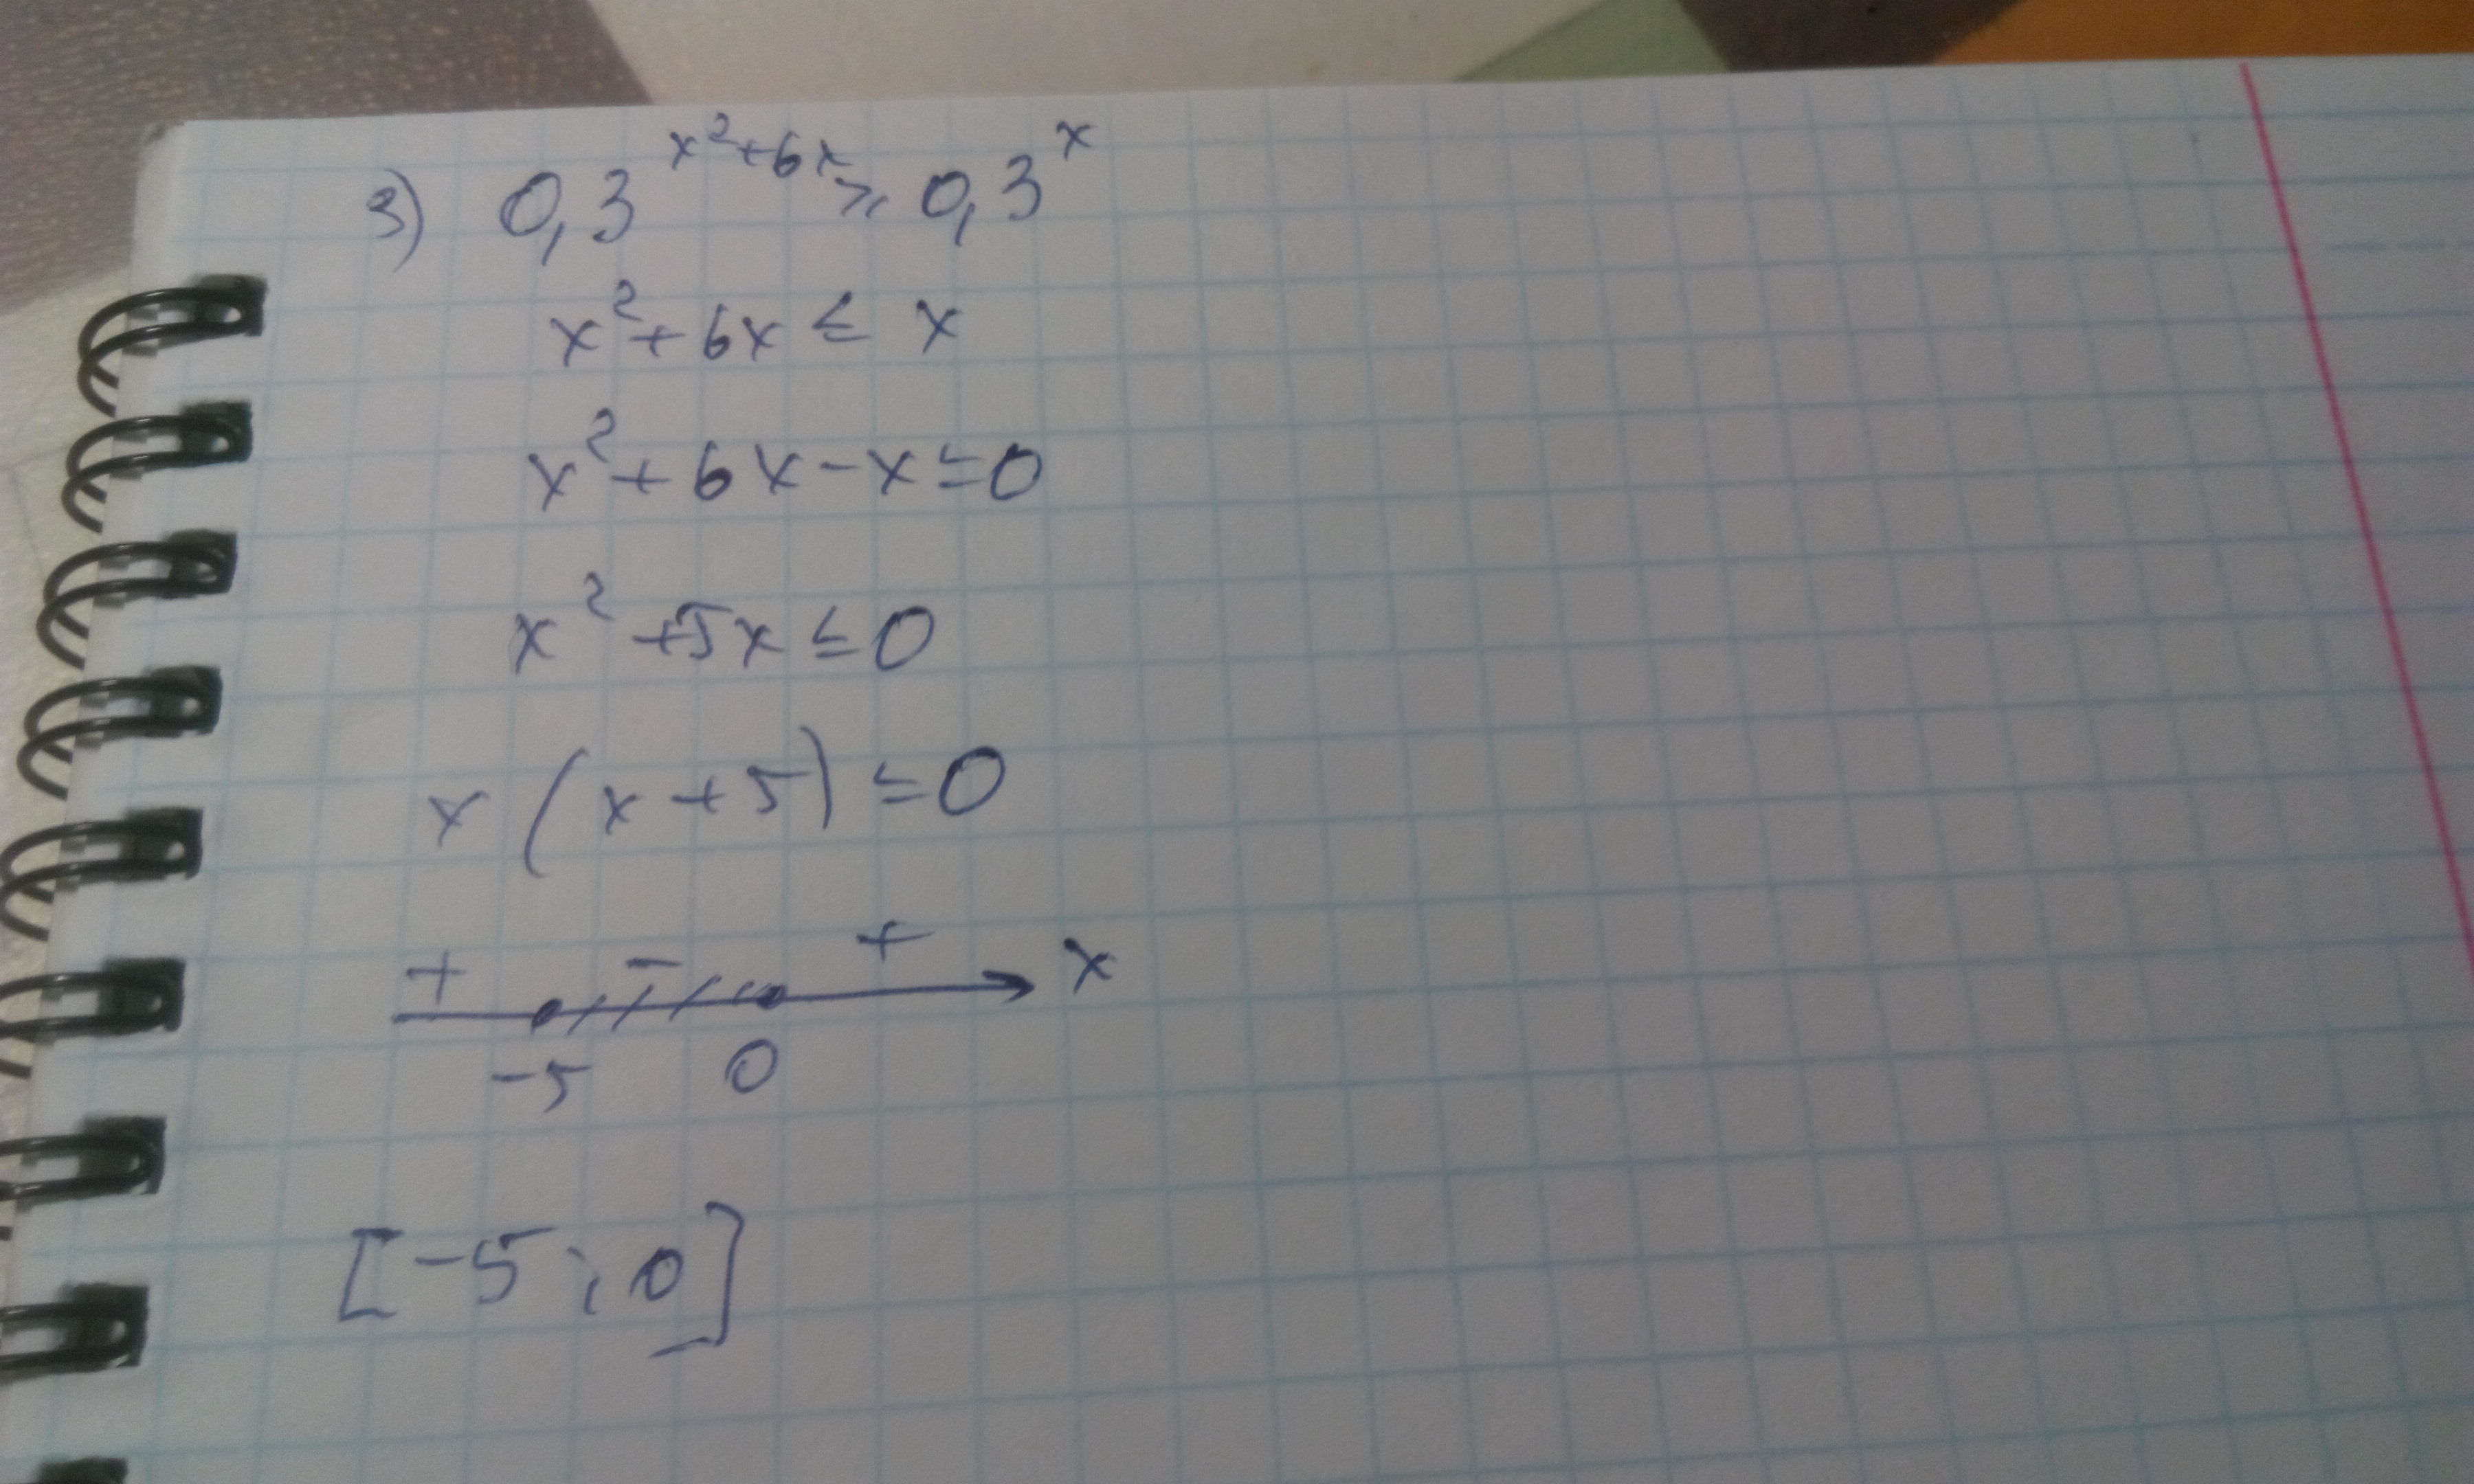 3) 0,3^{x^2+6x} ⩾ 0,3^x
x^2 + 6x ≤ x
x^2 + 6x - x ≤ 0
x^2 + 5x ≤ 0
x (x + 5) ≤ 0
+ - + x
-5 0
[-5; 0]